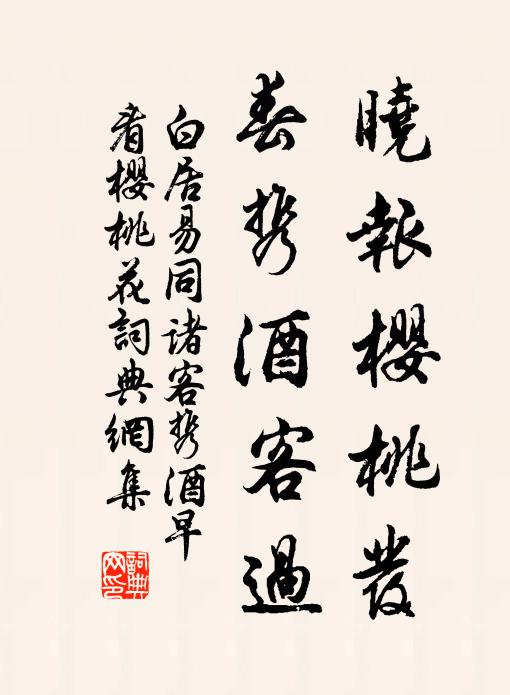 曉報櫻桃發
春携酒客過
白居易同諸客携酒早
看櫻桃花詞典網集
詞典
网印